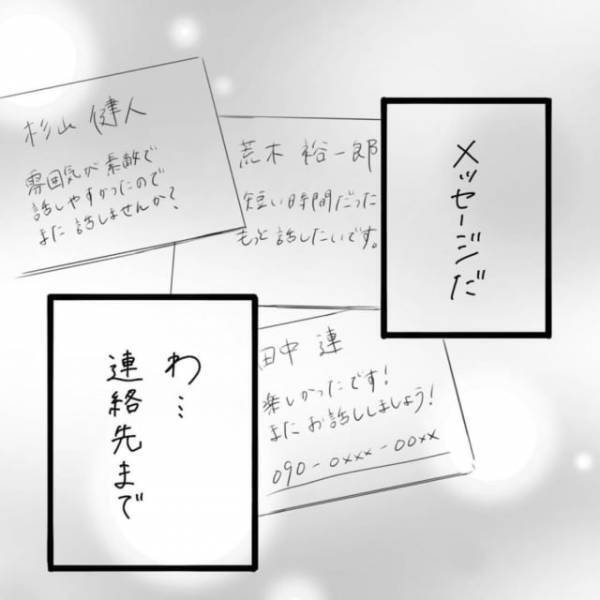 メッセージだ
杉山 健人
雰囲気が素敵で
話しやすかったので
また話しませんか?
荒木 裕一郎
短い時間だった
もっと話したいです。
田中 連
楽しかったです!
またお話ししましょう!
090-0xxx-00xx
わ…
連絡先まで